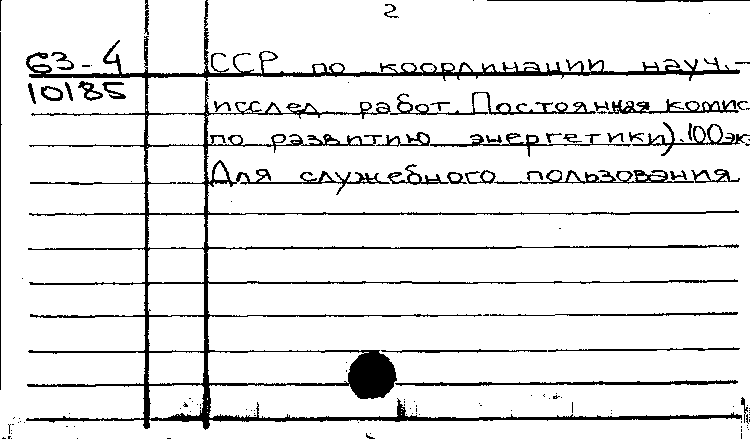 2
63-4 ССР по координации науч.-
10185
исслед. работ. Постоянная комис
по развитию энергетики). 100 эк
Для служебного пользования